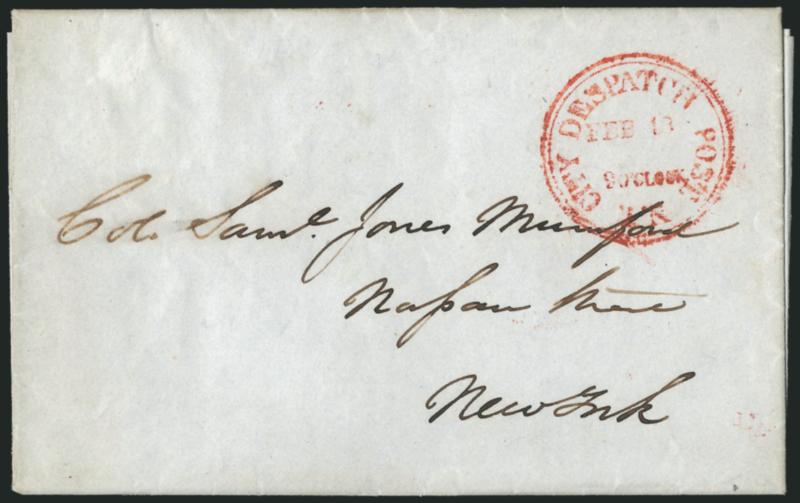 CITY DESPATCH POST
FEB 13
9 O'CLOCK
N.Y.
Col. Saml. Jones Mumford
Nassau Street
New York